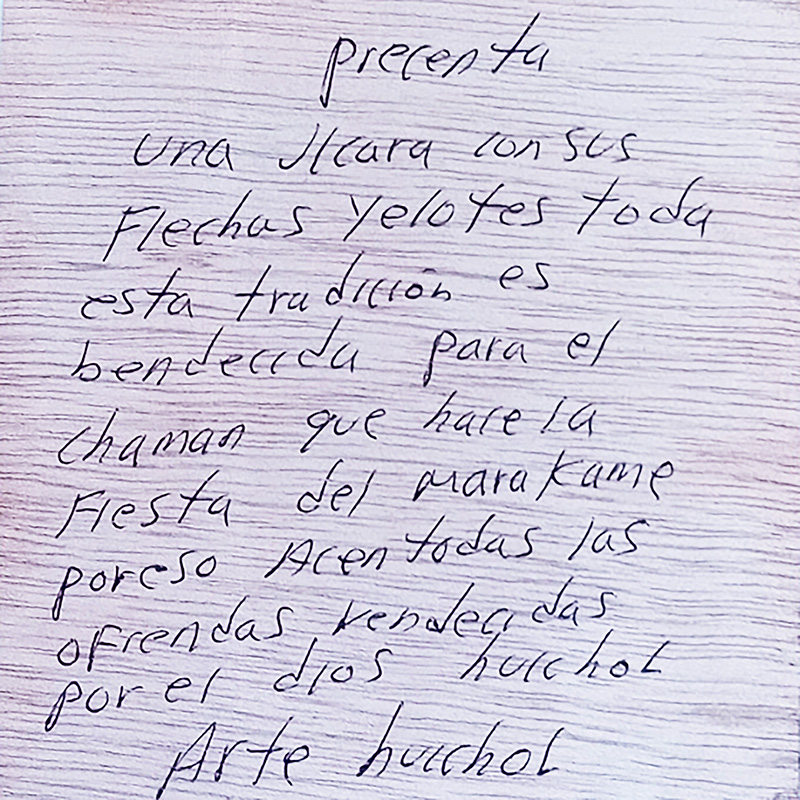 precenta
una Jícara con sus
Flechas Yelotes toda
esta tradición es
bendecida para el
chaman que hace la
Fiesta del marakame
poreso Acen todas las
ofrendas vendecidas
por el dios huichol
Arte huichol